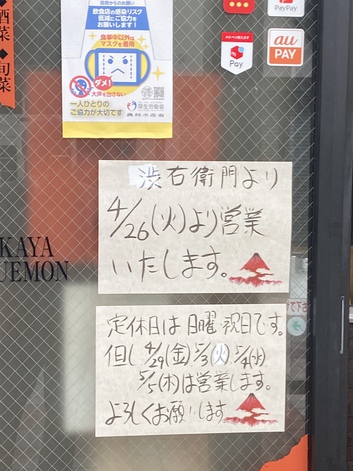 酒菜◆旬菜
飲食店の感染リスク
低減にご協力を
お願いします!
食事中以外は
マスクを着用
ダメ!
大声を出さない
一人ひとりの
ご協力が大切です
厚生労働省
農林水産省
PayPay
Pay
au
PAY
渋右衛門より
4/26(火)より営業
いたします。
KAYA
UEMON
定休日は日曜祝日です。
但し4/29(金)5/3(火)5/4(水)
5/5(木)は営業します。
よろしくお願いします